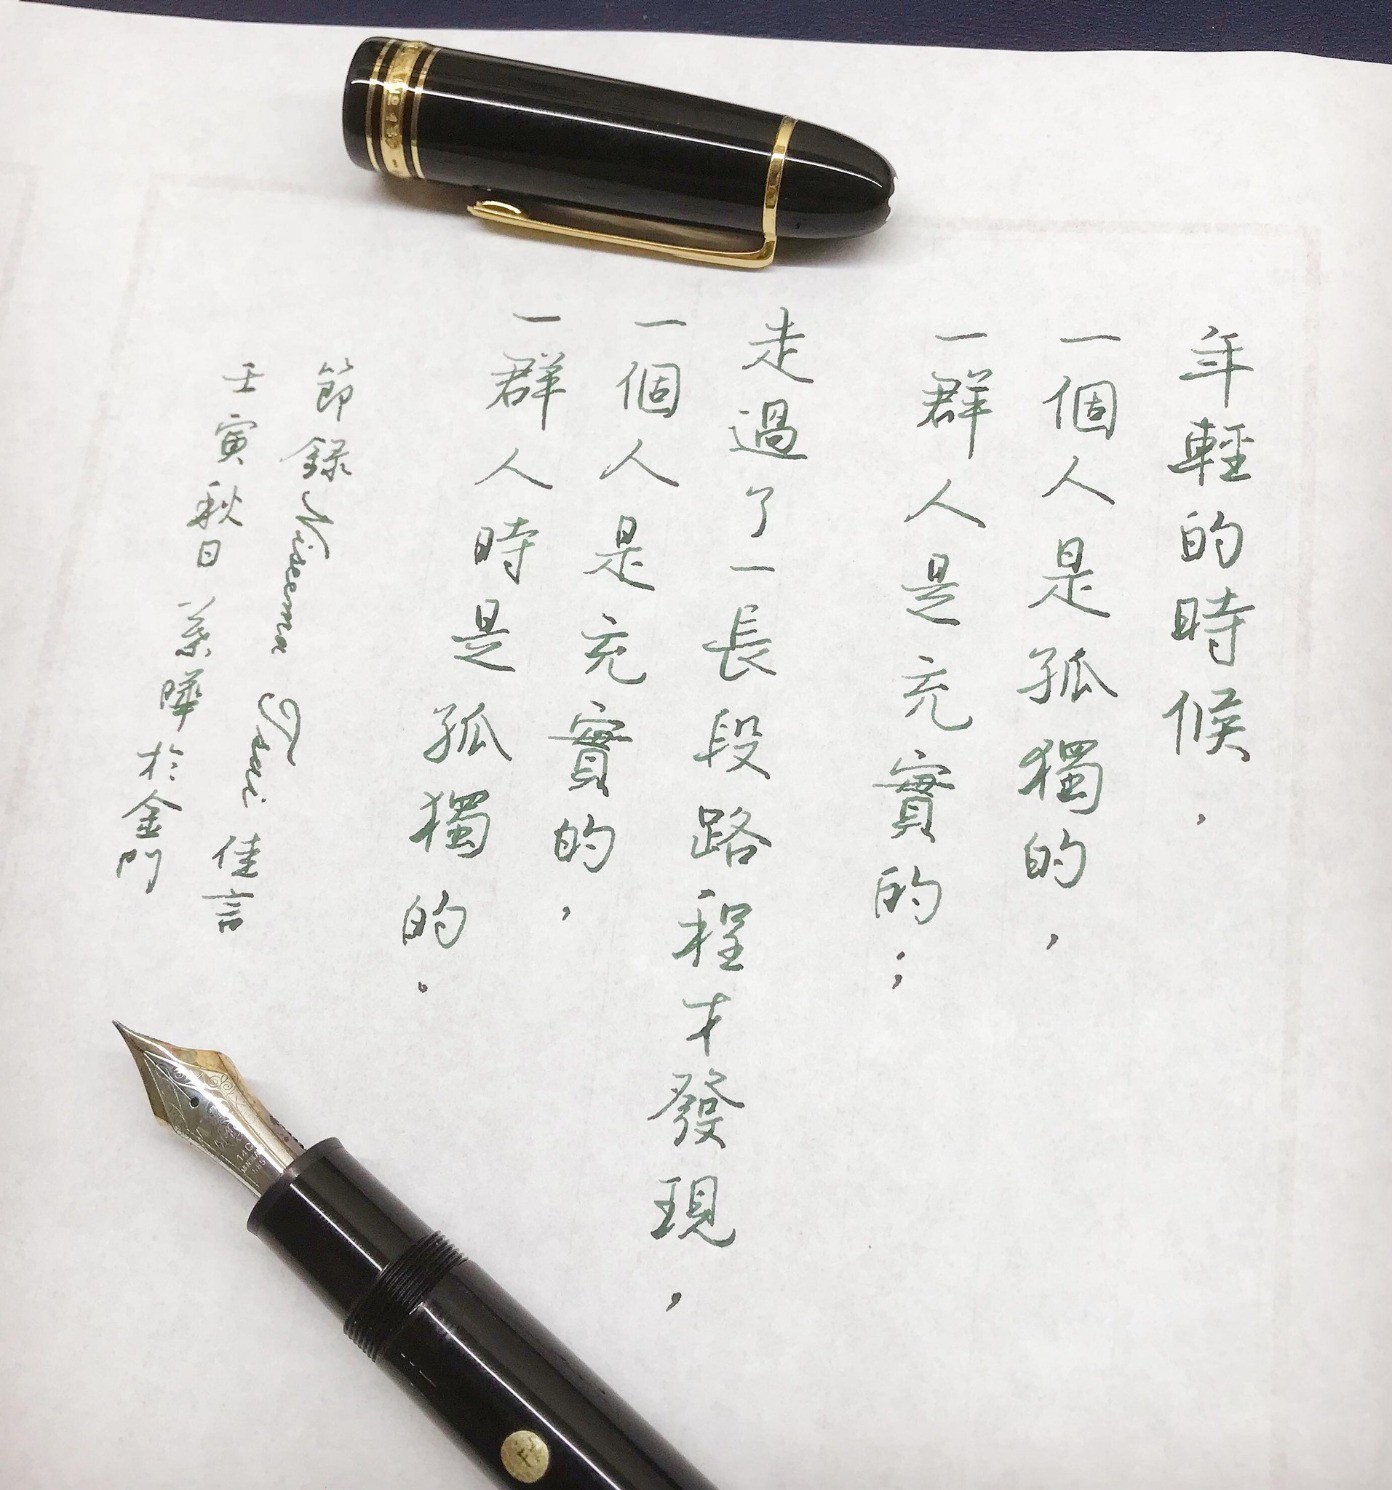 年輕的時候，
一個人是孤獨的，
一群人是充實的；
走過了一長段路程才發現，
一個人是充實的，
一群人時是孤獨的。
節錄 Niseema Tsai 佳言
壬寅秋日 葉曄於金門